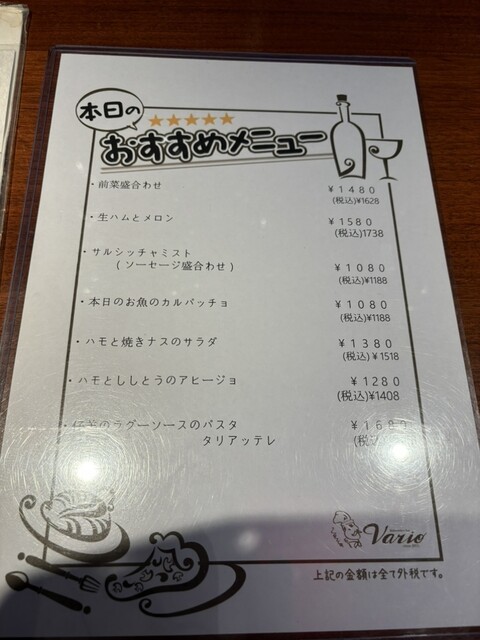 本日の
おすすめメニュー
・前菜盛合わせ ¥1480
(税込)¥1628
・生ハムとメロン ¥1580
(税込)1738
・サルシッチャミスト
(ソーセージ盛合わせ) ¥1080
(税込)¥1188
・本日のお魚のカルパッチョ ¥1080
(税込)¥1188
・ハモと焼きナスのサラダ ¥1380
(税込)¥1518
・ハモとししとうのアヒージョ ¥1280
(税込)¥1408
のラグーソースのパスタ ¥1680
タリアッテレ (税込)
Vario
上記の金額は全て外税です。